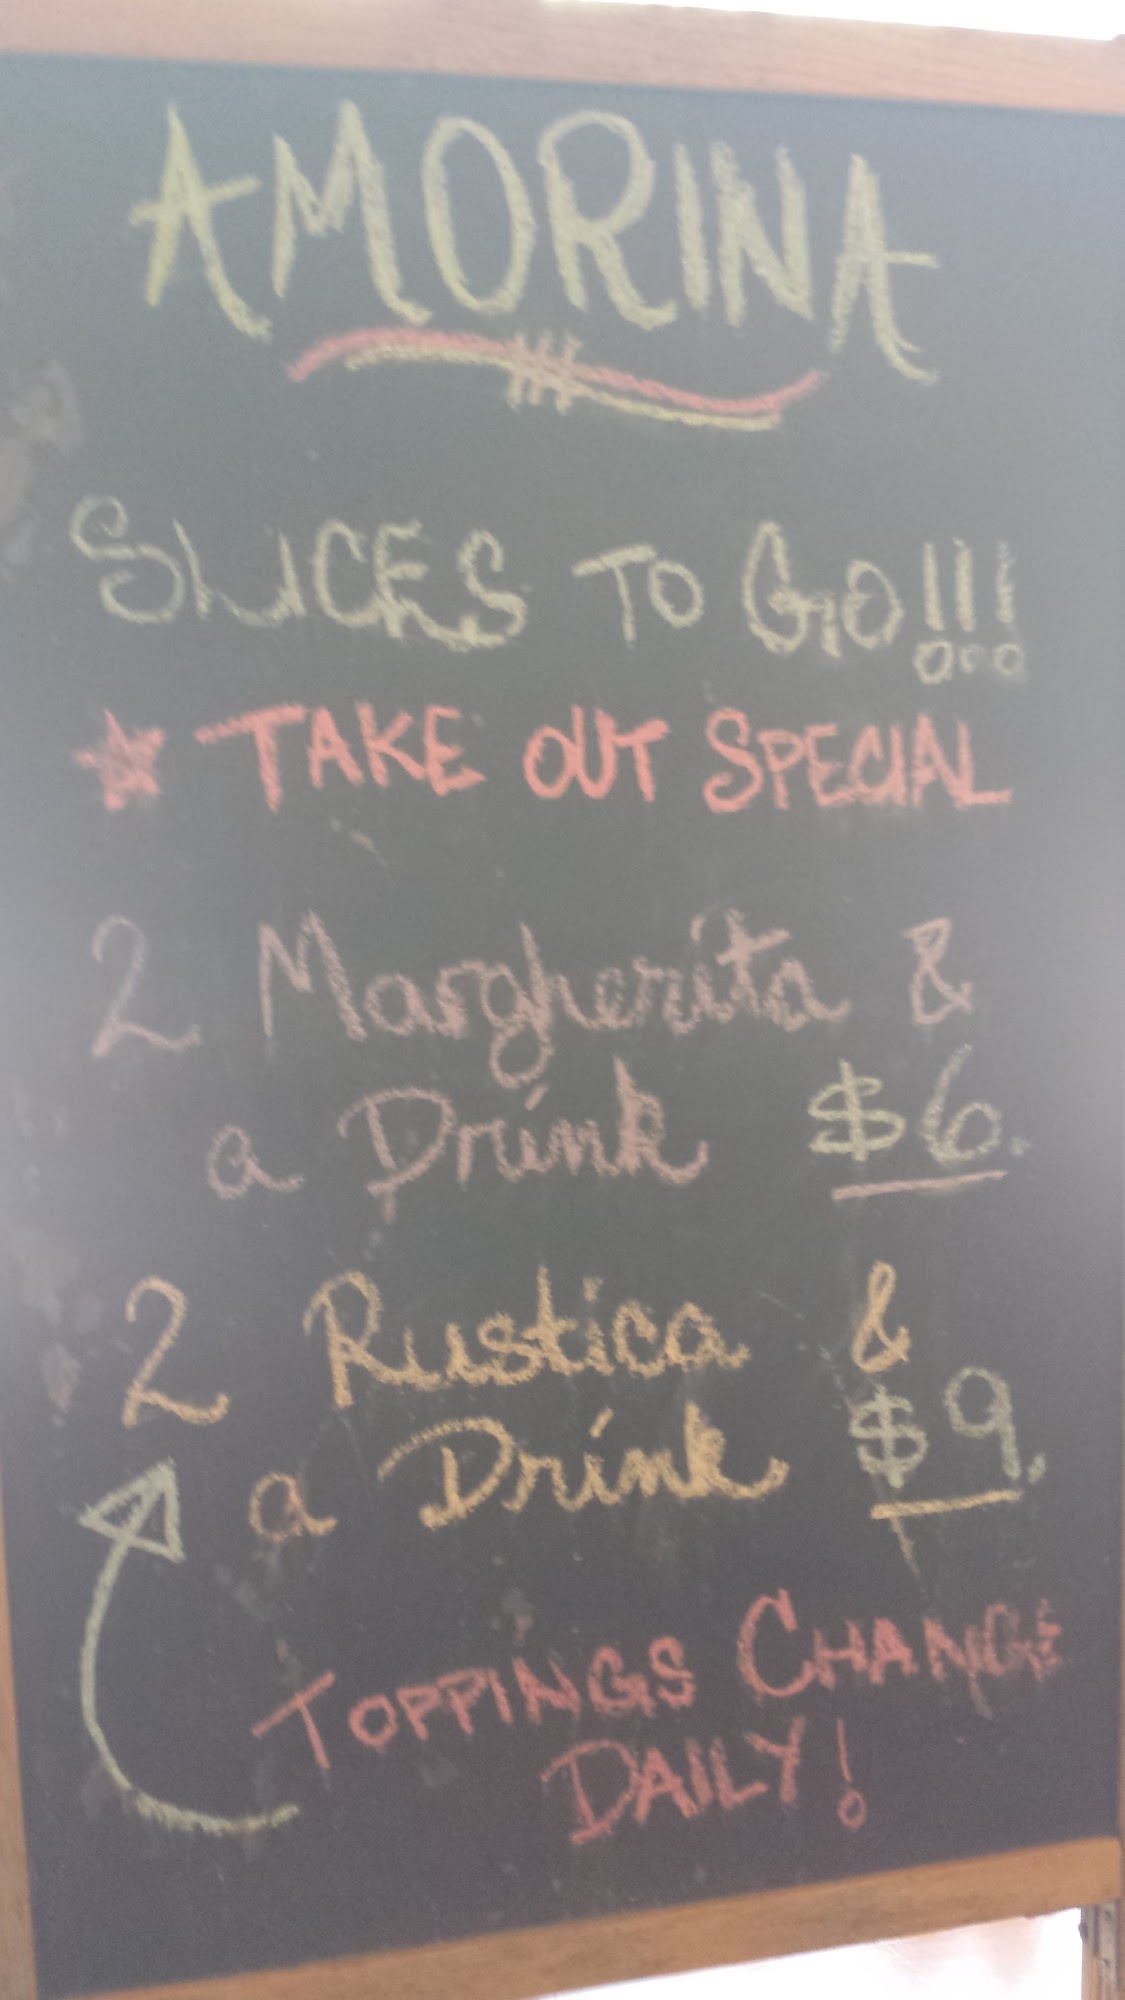 AMORINA
SLICES TO GO!!!
TAKE OUT SPECIAL
2 Margherita &
a Drink $6.
2 Rustica &
a Drink $9.
TOPPINGS CHANGE
DAILY!